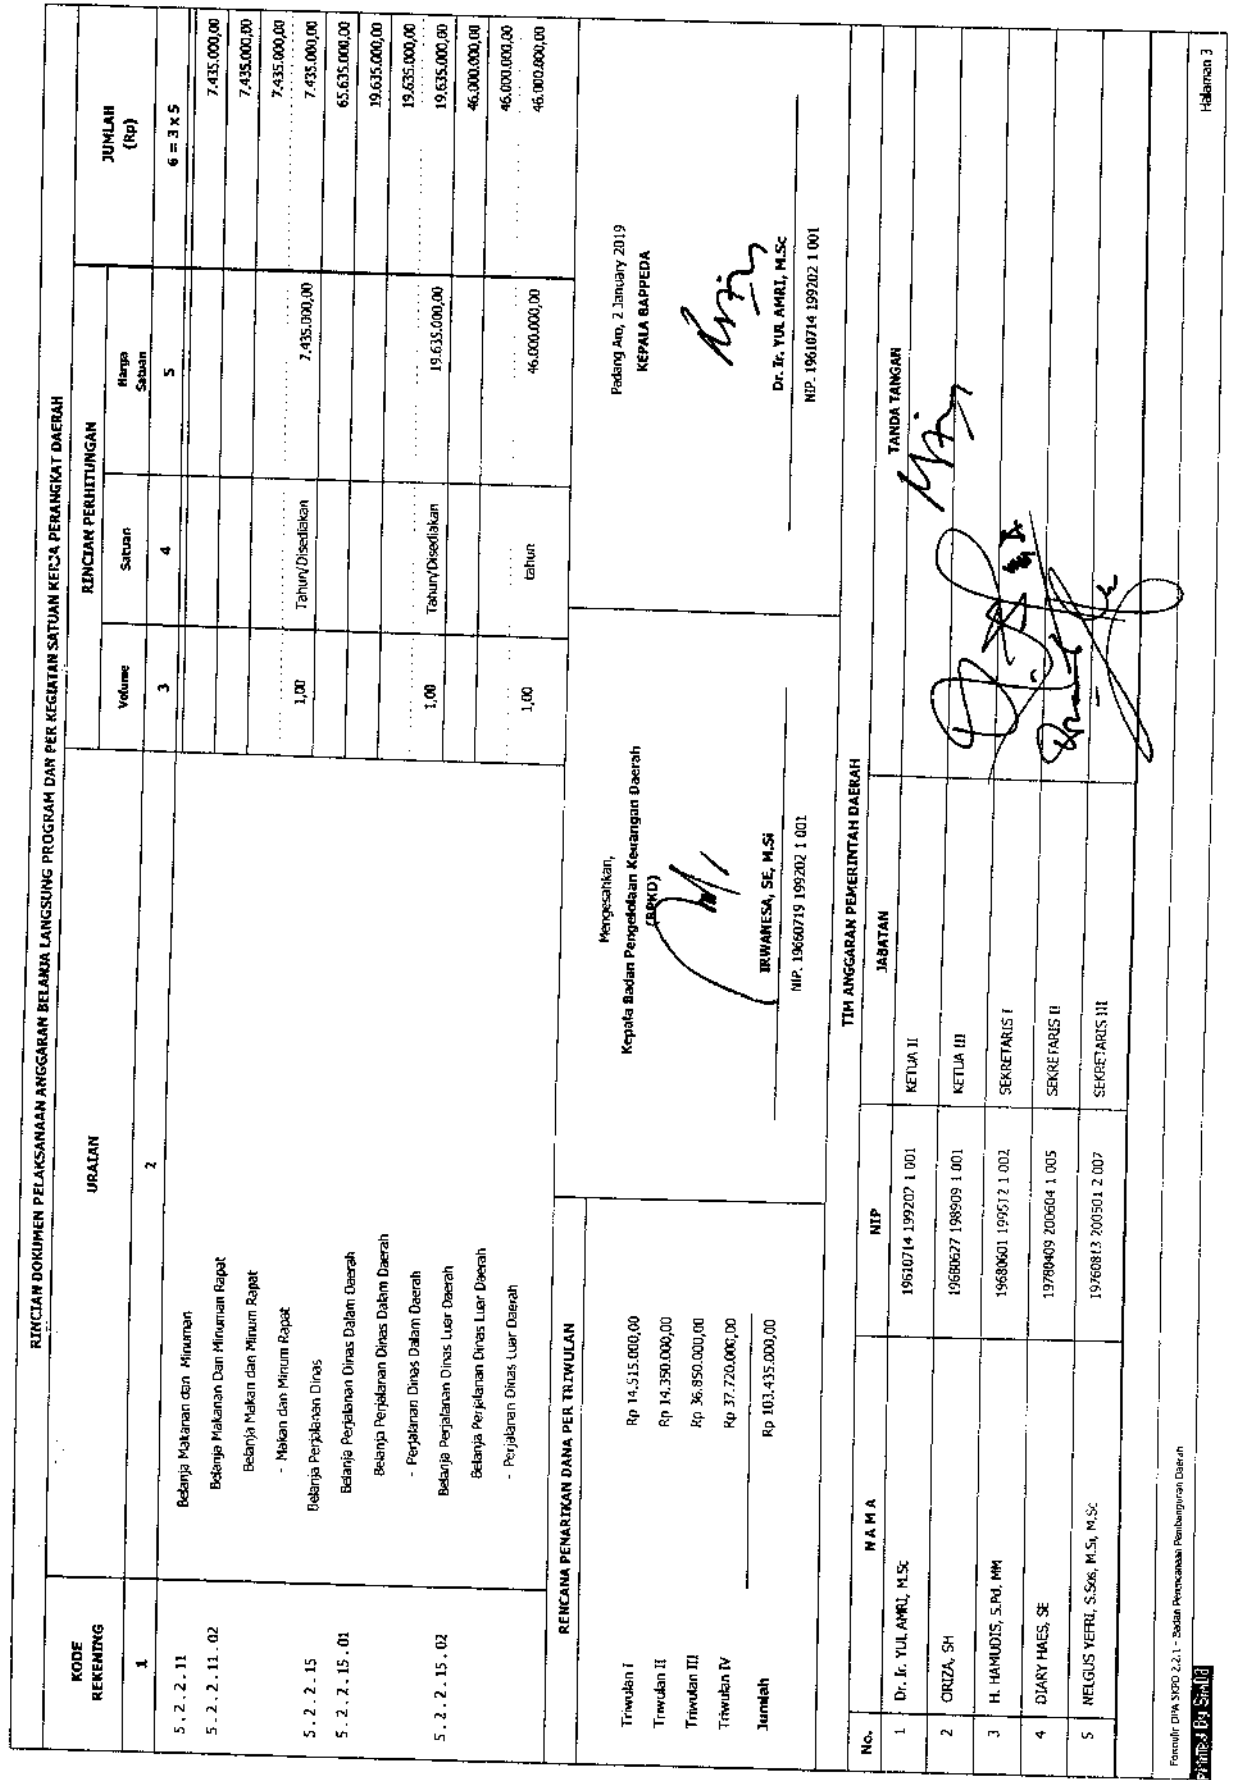 RINCIAN DOKUMEN PELAKSANAAN ANGGARAN BELANJA LANGSUNG PROGRAM DAN PER KEGIATAN SATUAN KERJA PERANGKAT DAERAH
KODE REKENING URAIAN RINCIAN PERHITUNGAN JUMLAH (Rp)
Volume Satuan Harga Satuan
1 2 3 4 5 6 = 3 x 5
5 . 2 . 2 . 11 Belanja Makanan dan Minuman 7.435.000,00
5 . 2 . 2 . 11 . 02 Belanja Makanan Dan Minuman Rapat 7.435.000,00
Belanja Makan dan Minum Rapat 7.435.000,00
- Makan dan Minum Rapat 1,00 Tahun/Disediakan 7.435.000,00 7.435.000,00
5 . 2 . 2 . 15 Belanja Perjalanan Dinas 65.635.000,00
5 . 2 . 2 . 15 . 01 Belanja Perjalanan Dinas Dalam Daerah 19.635.000,00
Belanja Perjalanan Dinas Dalam Daerah 19.635.000,00
- Perjalanan Dinas Dalam Daerah 1,00 Tahun/Disediakan 19.635.000,00 19.635.000,00
5 . 2 . 2 . 15 . 02 Belanja Perjalanan Dinas Luar Daerah 46.000.000,00
Belanja Perjalanan Dinas Luar Daerah 46.000.000,00
- Perjalanan Dinas Luar Daerah 1,00 tahun 46.000.000,00 46.000.000,00
RENCANA PENARIKAN DANA PER TRIWULAN
Triwulan I Rp 14.515.000,00
Triwulan II Rp 14.350.000,00
Triwulan III Rp 36.850.000,00
Triwulan IV Rp 37.720.000,00
Jumlah Rp 103.435.000,00
Mengesahkan,
Kepala Badan Pengelolaan Keuangan Daerah
(BPKD)
IRWANESA, SE, M.Si
NIP. 19660719 199202 1 001
Padang Aro, 2 January 2019
KEPALA BAPPEDA
Dr. Ir. YUL AMRI, M.Sc
NIP. 19610714 199202 1 001
TIM ANGGARAN PEMERINTAH DAERAH
No. N A M A NIP JABATAN TANDA TANGAN
1 Dr. Ir. YUL AMRI, M.Sc 19610714 199202 1 001 KETUA II
2 ORIZA, SH 19680627 198909 1 001 KETUA III
3 H. HAMUDIS, S.Pd, MM 19680601 199512 1 002 SEKRETARIS I
4 DIARY HAES, SE 19780409 200604 1 005 SEKRETARIS II
5 NELGUS YEFRI, S.Sos, M.Si, M.Sc 19760813 200501 2 007 SEKRETARIS III
Formulir DPA SKPD 2.2.1 - Badan Perencanaan Pembangunan Daerah
Printed By Simda
Halaman 3